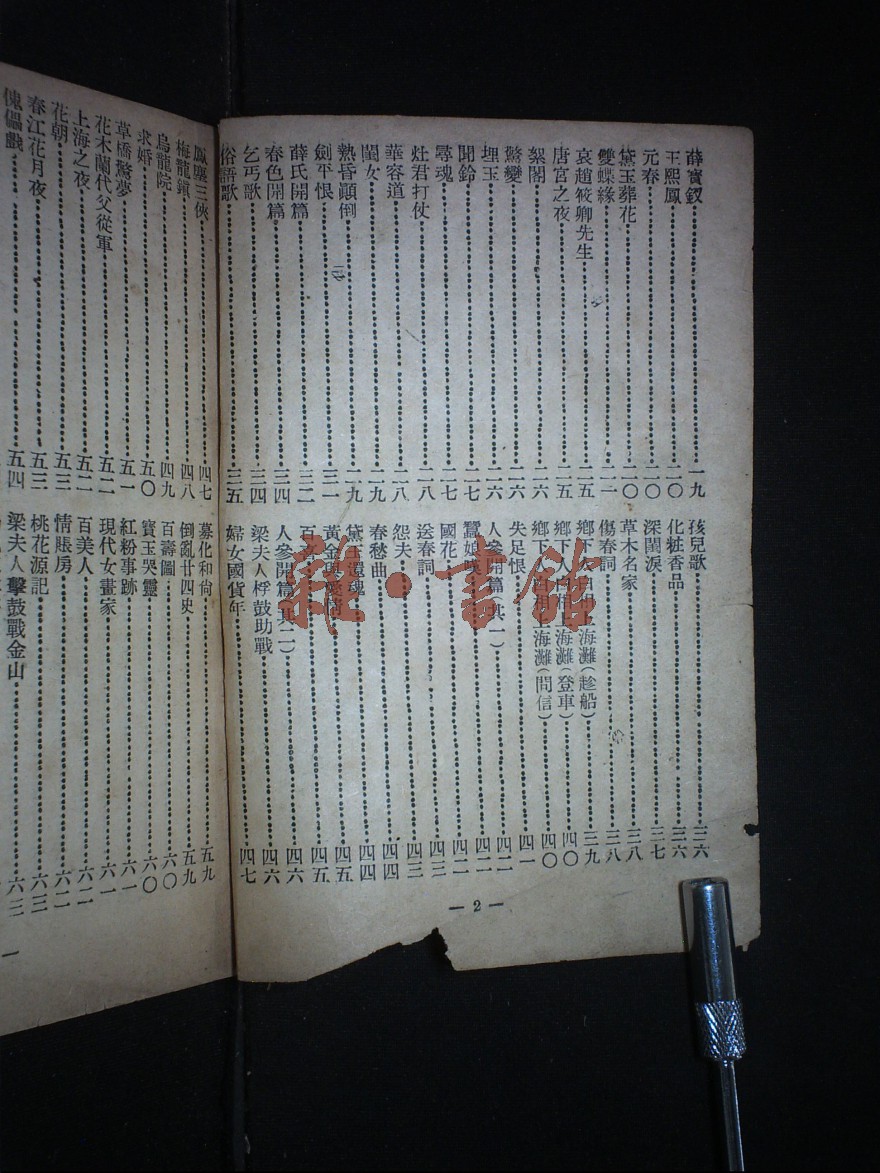 薛寶釵 一九
王熙鳳 二〇
元春 二〇
黛玉葬花 二〇
雙蝶緣 二一
哀趙筱卿先生 二五
唐宮之夜 二五
絮閣 二六
驚變 二六
埋玉 二六
聞鈴 二七
尋魂 二七
灶君打仗 二八
華容道 二八
閨女 二九
熱昏顚倒 二九
劍平恨 三一
薛氏開篇 三二
春色開篇 三四
乞丐歌 三四
俗語歌 三五
孩兒歌 三六
化粧香品 三六
深閨淚 三七
草木名家 三八
傷春詞 三八
鄉下人白相上海灘(趁船) 三九
鄉下人白相上海灘(登車) 四〇
鄉下人白相上海灘(問信) 四〇
失足恨 四一
人參開篇(其一) 四二
蠶娘嘆 四二
國花 四三
送春詞 四三
怨夫 四四
春愁曲 四四
黛玉還魂 四五
黃金與愛情 四五
人參開篇(其二) 四六
梁夫人桴鼓助戰 四六
婦女國貨年 四七
— 2 —
風塵三俠 四七
梅龍鎭 四八
烏龍院 四九
求婚 五〇
草橋驚夢 五一
花木蘭代父從軍 五二
上海之夜 五二
花朝 五三
春江花月夜 五三
傀儡戲 五四
募化和尙 五九
倒亂廿四史 五九
百壽圖 六〇
寶玉哭靈 六〇
紅粉事跡 六一
現代女畫家 六一
百美人 六二
情賬房 六二
桃花源記 六三
梁夫人擊鼓戰金山 六三
雜·書館